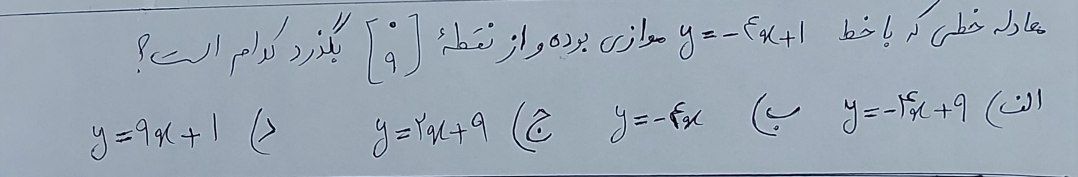 معادله خطی که با خط y = -۴x+1 موازی بوده و از نقطهٔ [۰ ۹] بگذرد کدام است؟
الف) y=-۴x+9 ب) y=-۴x ج) y=۲x+9 د) y=9x+1